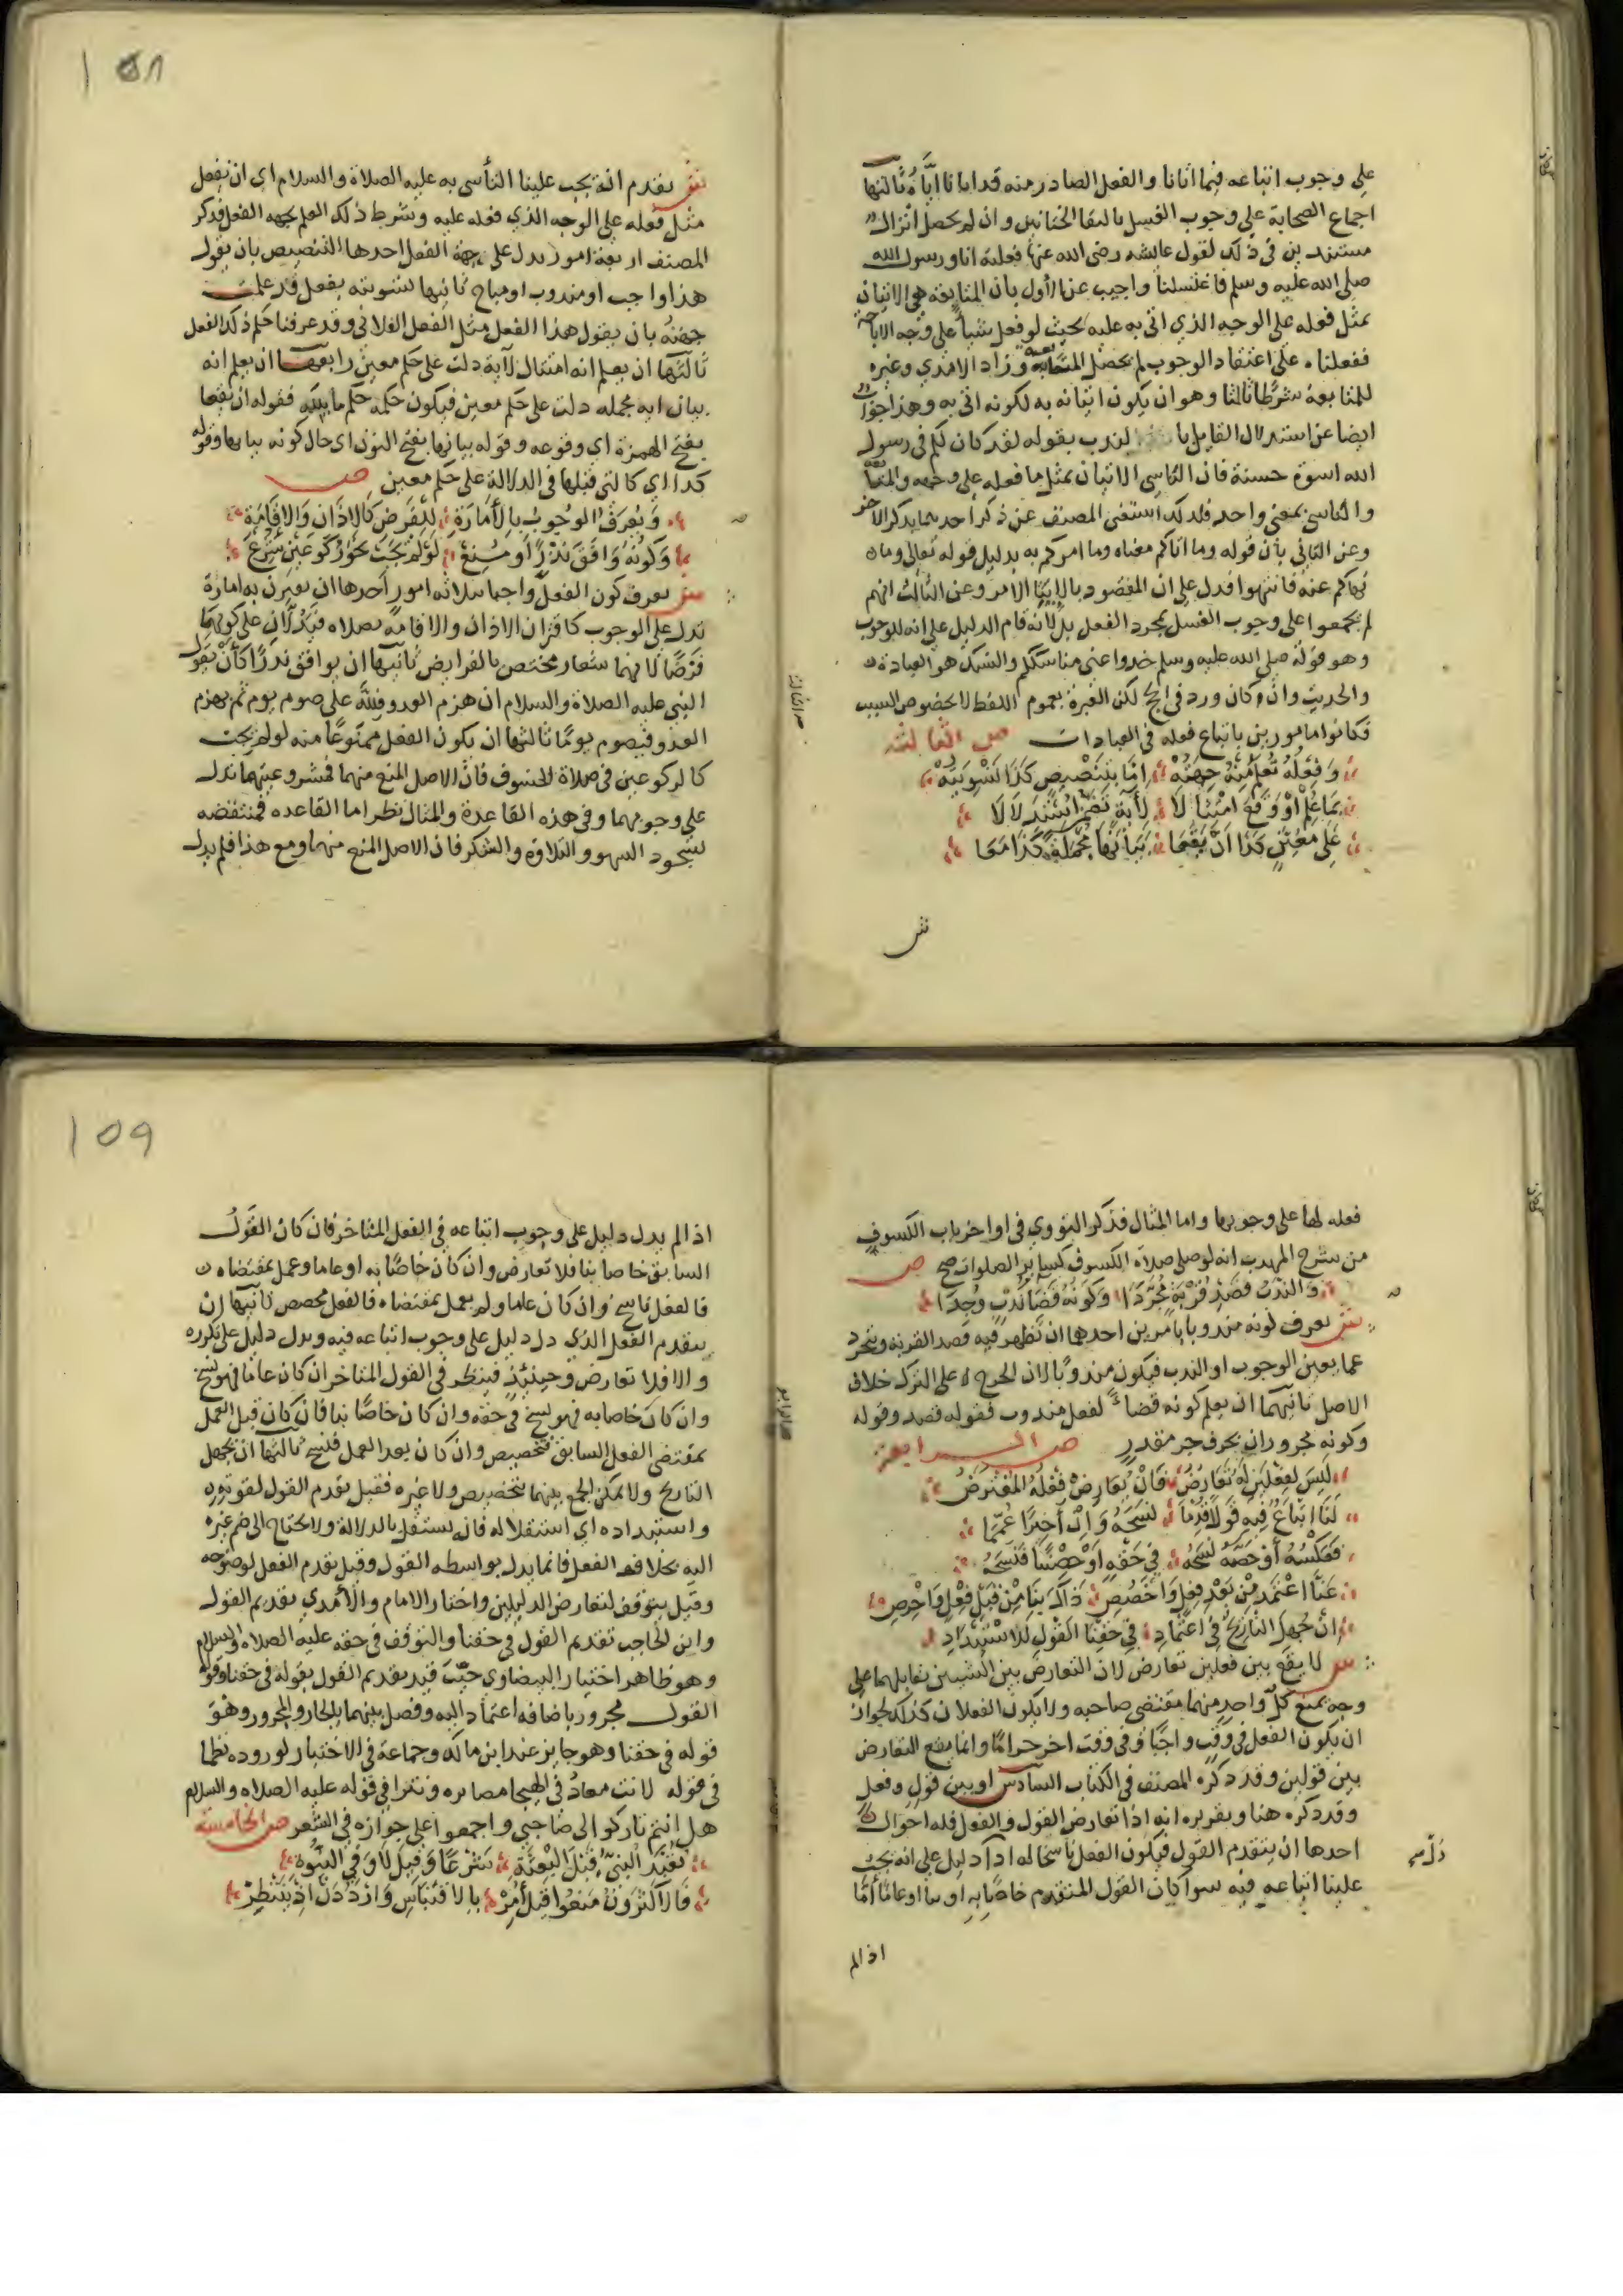 على وجوب اتباعه فيما اتانا والفعل الصادر منه قد اتانا اياه ثالثها
اجماع الصحابة على وجوب الغسل بالتقا الختانين وان لم يحصل انزال
مستندين في ذلك لقول عايشه رضى الله عنها فعلته انا ورسول الله
صلى الله عليه وسلم فاغتسلنا واجيب عن الأول بان المتابعة هي الاتيان
بمثل فعله على الوجه الذي اتى به عليه بحيث لو فعل شيأ على وجه الاباحة
ففعلناه على اعتقاد الوجوب لم يحصل المتابعة وزاد الامدي وغيره
للمتابعة شرطا ثالثا وهو ان يكون اتيانه به لكونه اتى به وهذا جواب
ايضا عن استدلال القايل بالندب بقوله لقد كان لكم في رسول
الله اسوة حسنة فان التاسي الاتيان بمثل ما فعله على وجهه والمتابعة
والتاسي بمعنى واحد فلذلك استغنى المصنف عن ذكر احدهما بذكر الاخر
وعن الثاني بأن قوله وما اتاكم معناه وما امركم به بدليل قوله تعالى وما
نهاكم عنه فانتهوا فدل على ان المقصود بالايتا الامر وعن الثالث انهم
لم يجمعوا على وجوب الغسل بمجرد الفعل بل لأنه قام الدليل على انه للوجوب
وهو قوله صلى الله عليه وسلم خذوا عني مناسككم والنسك هو العبادة
والحديث وان كان ورد في الحج لكن العبرة بعموم اللفظ لا بخصوص السبب
فكانوا مامورين باتباع فعله في العبادات ص الثالثة
وَفِعْلُهُ تُعْلَمُ مِنْهُ جِهَتُهْ اِمَّا بِتَنْصِيصٍ كَذَا تَسْوِيَتُهْ
بِمَا عُلِمْ اَوْ وَقَعَ امْتِثَالَا لِآيَةٍ
عَلَى مُعَيَّنٍ كَذَا اَنْ يَقَعَا بَيَانَهَا مُجْمَلَةً كَذَا مَعَا
ش
158
ش تقدم انه يجب علينا التأسي به عليه الصلاة والسلام اي ان نفعل
مثل فعله على الوجه الذي فعله عليه وشرط ذلك العلم بجهه الفعل فذكر
المصنف اربعة امور تدل على جهة الفعل احدها التنصيص بان يقول
هذا واجب او مندوب او مباح ثانيها تسويته بفعل قد علمت
جهته بان يقول هذا الفعل مثل الفعل الفلاني وقد عرفنا حكم ذلك الفعل
ثالثها ان يعلم انه امتثال لآية دلت على حكم معين رابعها ان يعلم انه
بيان ايه مجمله دلت على حكم معين فيكون حكمه حكم ما بينته فقوله ان يقعا
بفتح الهمزة اي وقوعه وقوله بيانها بفتح النون اي حال كونه بيانها وقوله
كذا اي كالتي قبلها في الدلالة على حكم معين ص
وَيُعْرَفُ الْوُجُوبُ بِالْأَمَارَةِ لِلْفَرْضِ كَالاَذَانِ وَالاِقَامَةِ
وَكَوْنُهُ وَافَقَ نَذْرًا أَوْ مُنِعْ لَوْ لَمْ يَجِبْ نَحْوُ رُكُوعَيْنِ شُرِعْ
ش يعرف كون الفعل واجبا بثلاثه امور أحدها ان يقترن به امارة
تدل على الوجوب كاقتران الاذان والاقامة بصلاه فيدلان على كونها
فرضا لانهما شعار مختص بالفرايض ثانيها ان يوافق نذرا كأن يقول
النبي عليه الصلاة والسلام ان هزم العدو فلله علي صوم يوم ثم يهزم
العدو فيصوم يوما ثالثها ان يكون الفعل ممنوعًا منه لو لم يجب
كالركوعين في صلاة الخسوف فان الاصل المنع منهما فمشروعيتهما تدل
على وجوبهما وفي هذه القاعدة والمثال نظر اما القاعده فمنتقضه
بسجود السهو والتلاوة والشكر فان الاصل المنع منهما ومع هذا فلم يدل
فعله لها على وجوبها واما المثال فذكر النووي في اواخر باب الكسوف
من شرح المهذب انه لو صلى صلاة الكسوف كساير الصلوات صح ص
وَالنَّدْبُ قَصْدِ قُرْبَةٍ مُجَرَّدَا وَكَوْنُهُ قَضَا نَدْبٍ وُجِدَا
ش يعرف كونه مندوبا بامرين احدهما ان تظهر فيه قصد القربه ويتجرد
عما يعين الوجوب او الندب فيكون مندوبًا لان الحرج على الترك خلاف
الاصل ثانيهما ان يعلم كونه قضاء لفعل مندوب فقوله قصد وقوله
وكونه مجروران بحرف جر مقدر ص الرابعة
لَيْسَ لِفِعْلَيْنِ لَهُ تَعَارُضُ فَاِنْ يُعَارِضْ فِعْلُهُ الْمُفْتَرَضُ
لَنَا اتِّبَاعٌ فِيهِ قَوْلًا قُدِّمَا نَسَخَهُ وَاِنْ أُخِّرَا عُمِّمَا
فَعَكْسُهُ أَوْ خَصَّهُ نَسَخَهُ فِي حَقِّهِ اَوْ خَصَّنَا فَنَسَخَهُ
عَنَّا اعْتُمِدْ مِنْ بَعْدِ فِعْلٍ وَاخْصُصِ ذَاكَ بِنَا مِنْ قَبْلِ فِعْلٍ وَاحْرِصِ
اِنْ جُهِلَ التَّارِيخُ فِي اعْتِمَادِ فِي حَقِّنَا الْقَوْلِ لِلاسْتِبْدَادِ
ش لا يقع بين فعلين تعارض لان التعارض بين الشيين تقابلهما على
وجه يمنع كل واحد منهما مقتضى صاحبه ولا يكون الفعلان كذلك لجواز
ان يكون الفعل في وقت واجبًا وفي وقت اخر حراما وانما يقع التعارض
بين قولين وقد ذكره المصنف في الكتاب السادس او بين قول وفعل
وقد ذكره هنا وتقريره انه اذا تعارض القول والفعل فله احوال
احدها ان يتقدم القول فيكون الفعل ناسخا له اذا دل دليل على انه يجب
علينا اتباعه فيه سوا كان القول المتقدم خاصا به او بنا او عاما أمّا
اذا لم
159
اذا لم يدل دليل على وجوب اتباعه في الفعل المتاخر فان كان القول
السابق خاصا بنا فلا تعارض وان كان خاصًا به او عاما وعمل بمقتضاه
فالفعل ناسخ وان كان عاما ولم يعمل بمقتضاه فالفعل مخصص ثانيها ان
يتقدم الفعل الذي دل دليل على وجوب اتباعه فيه ويدل دليل على تكرره
والا فلا تعارض وحينئذ فينظر في القول المتاخر ان كان عاما فهو نسخ
وان كان خاصا به فهو نسخ في حقه وان كان خاصًا بنا فان كان قبل العمل
بمقتضى الفعل السابق فتخصيص وان كان بعد العمل فنسخ ثالثها ان يجهل
التاريخ ولا يمكن الجمع بينهما بتخصيص ولا غيره فقيل تقدم القول لقوته
واستبداده اي استقلاله فانه يستقل بالدلالة ولا يحتاج الى ضم غيره
اليه بخلاف الفعل فانما يدل بواسطه القول وقيل يقدم الفعل لوضوحه
وقيل يتوقف لتعارض الدليلين واختار الامام والآمدي تقديم القول
وابن الحاجب تقديم القول في حقنا والتوقف في حقه عليه الصلاه والسلام
وهو ظاهر اختيار البيضاوي حيث قيد تقديم القول بقوله في حقنا وقوله
القول مجرور باضافه اعتماد اليه وفصل بينهما بالجار والمجرور وهو
قوله في حقنا وهو جايز عند ابن مالك وجماعة في الاختيار لوروده نظما
في قوله لانت معتاد في الهيجا مصابره ونثرا في قوله عليه الصلاه والسلام
هل انتم تاركوا لي صاحبي واجمعوا على جوازه في الشعر ص الخامسة
تُعُبِّدَ النَّبِيُّ قَبْلَ الْبَعْثَةِ شَرْعًا وَقِيلَ لَا وَفِي النُّبُوَّةِ
فَالْاَكْثَرُونَ مَنَعُوا قِيلَ أُمِرْ بِالاقْتِبَاسِ وَارْدُدَنْ اِذْ يَنْتَظِرْ